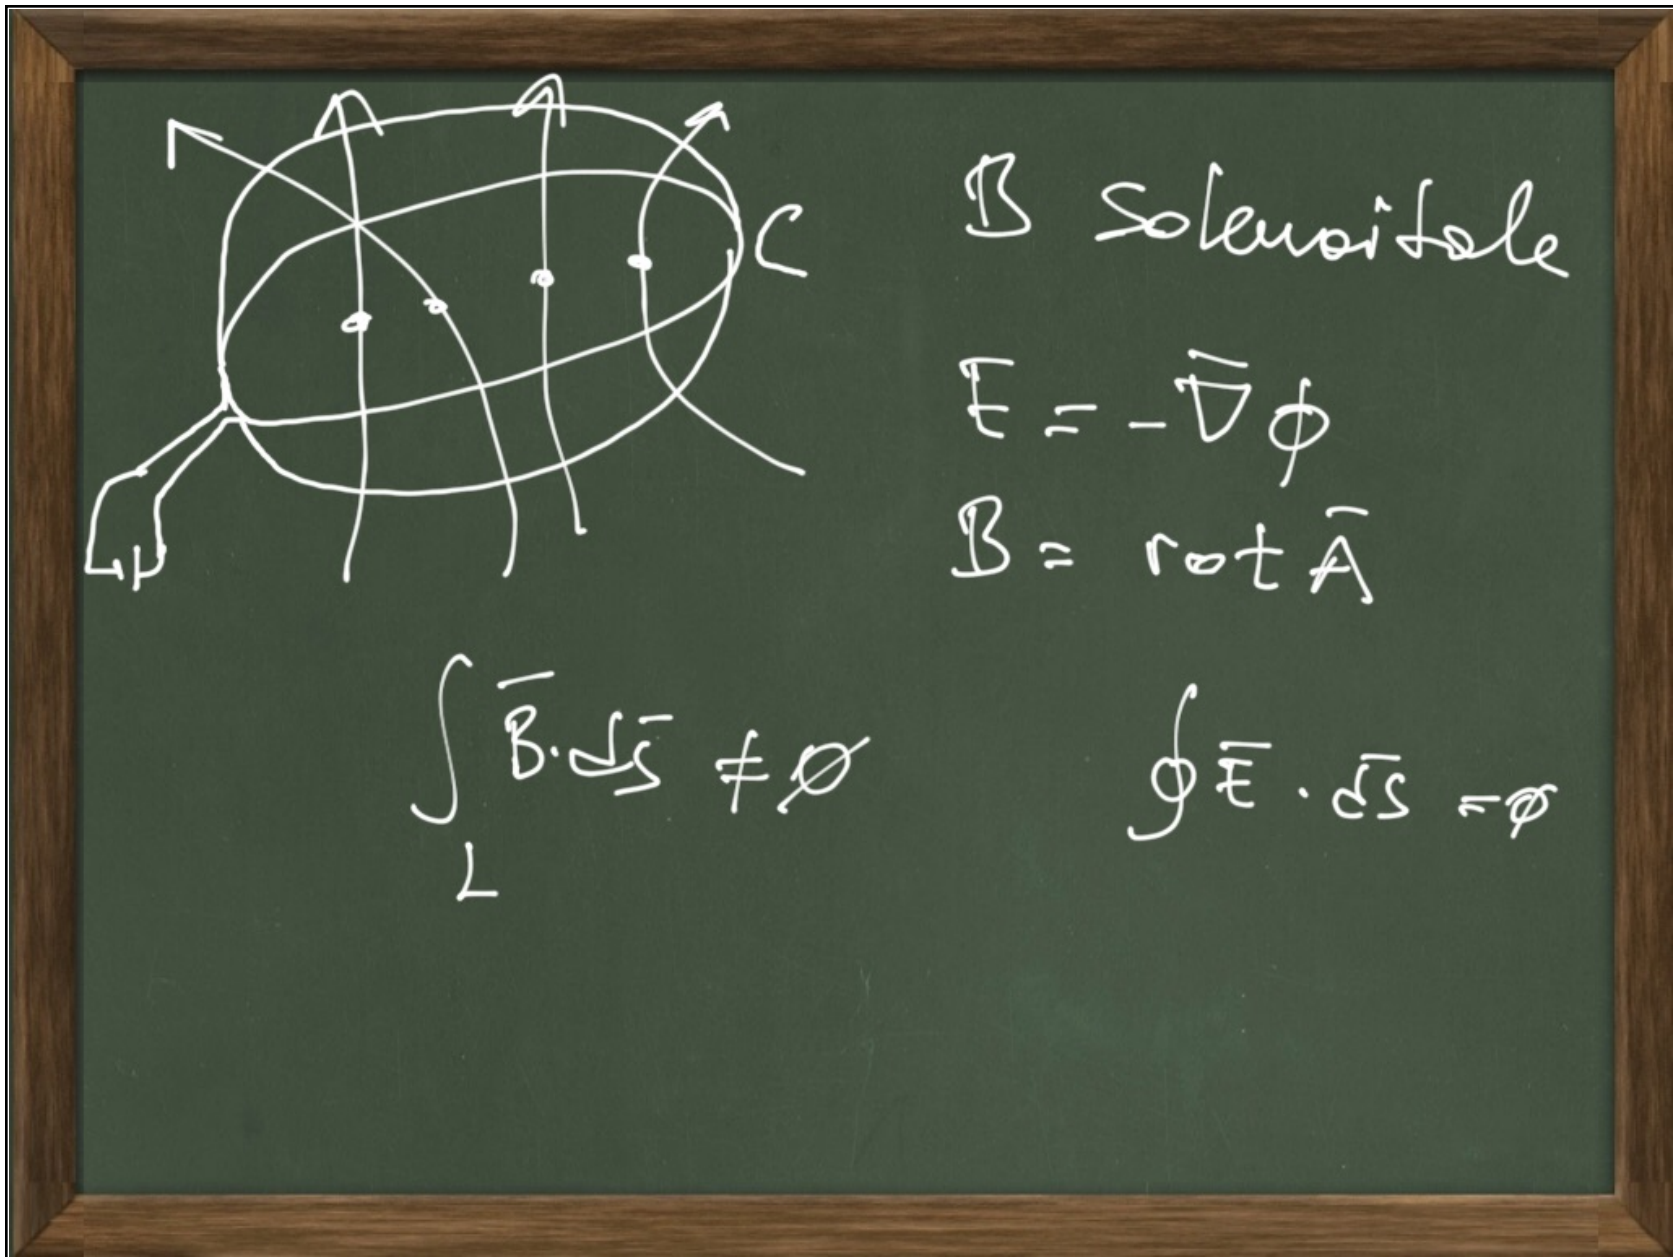 C
B solenoidale
E = -∇̄ϕ
B = rot Ā
∫ B̄·ds̄ ≠ ∅
L
∮ Ē · ds̄ = ∅